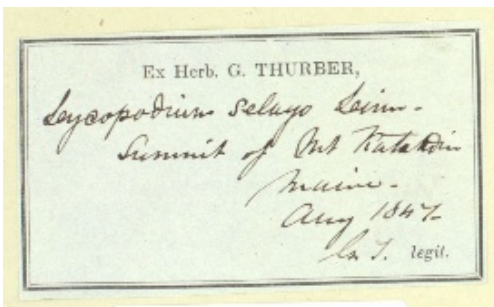 Ex Herb. G. THURBER,
Lycopodium selago Linn.
Summit of Mt Katahdin
Maine.
Aug 1847.
G. T. legit.